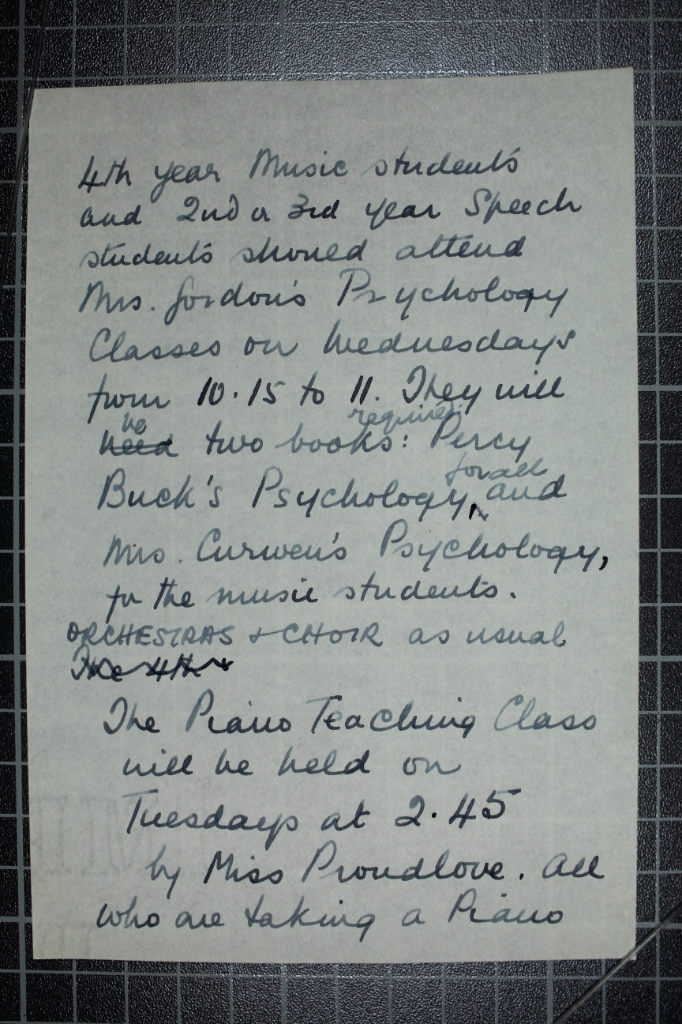 4th year Music students
and 2nd or 3rd year Speech
students should attend
Mrs. Gordon's Psychology
Classes on Wednesdays
from 10.15 to 11. They will
be required:
need two books: Percy
for all
Buck's Psychology, and
Mrs. Curwen's Psychology,
for the music students.
ORCHESTRAS + CHOIR as usual
The 4th
The Piano Teaching Class
will be held on
Tuesdays at 2.45
by Miss Proudlove. All
who are taking a Piano